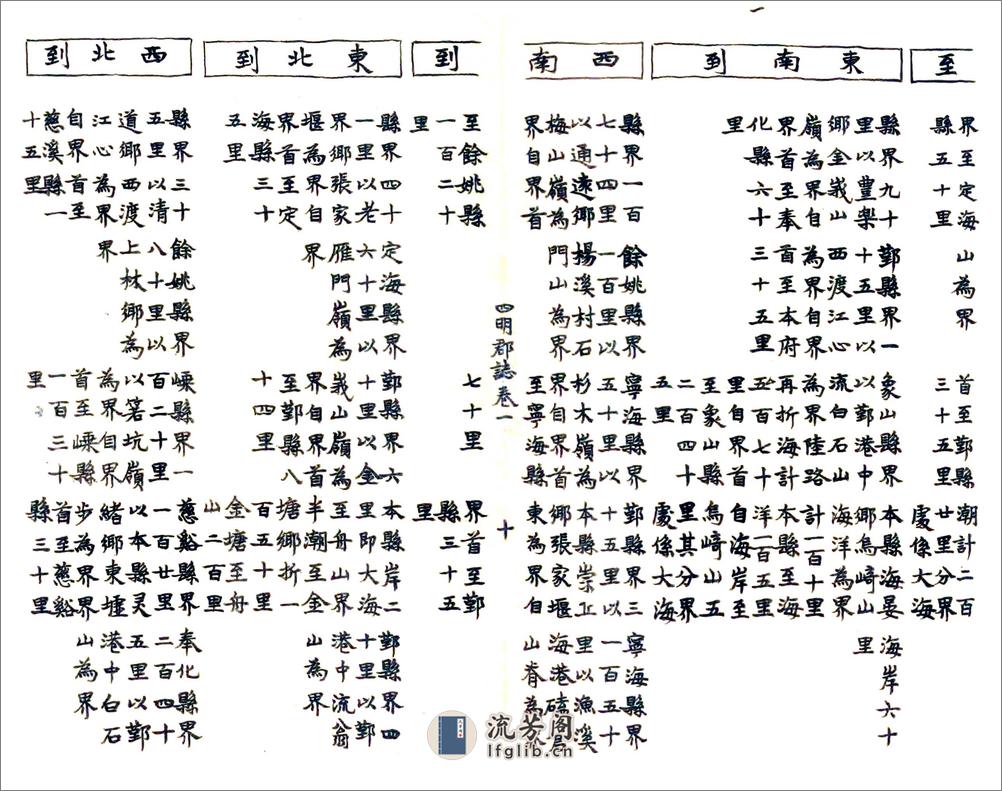 一
至
界至定海
縣五十里
山為界
首至鄞縣
三十五里
潮計二百
廿里分界
處係大海
東南到
縣界九十
里以豐樂
鄉金峩山
嶺為界自
界首至奉
化縣六十
里
鄞縣界一
十五里以
西渡江心
為界自界
首至本府
三十五里
象山縣界
以鄞港中
流白石山
為界陸路
再折海計
五百七十
里自界首
至象山縣
二百四十
五里
本縣海晏
鄉烏崎山
海洋為界
計一百十里
本縣至海
洋一百五里
自海岸至
烏崎山五
里其分界
處係大海
海岸六十
里
西南
縣界一百
七十四里
以通遠鄉
梅山嶺為
界自界首
餘姚縣界
一百里以
楊溪村石
門山為界
寧海縣界
五十里以
杉木嶺為
界自界首
至寧海縣
鄞縣界三
十五里以
本縣崇丘
鄉張家堰
東為界自
寧海縣界
一百五十
里以漁溪
海港磕
山脊為
四明郡誌卷一
十
到
至餘姚縣
一百二十
里
七十里
界首至鄞
縣三十五
里
東北到
縣界四十
一里以老
界鄉張家
堰為界自
界首至定
海縣三十
五里
定海縣界
六十里以
雁門嶺為
界
鄞縣界六
十里以金
峩山嶺為
界自界首
至鄞縣八
十四里
本縣岸二
里即大海
至舟山界
半潮至金
塘鄉折一
百五十里
金塘至舟
山二百里
鄞縣界四
十里以鄞
港中流翁
山為界
西北到
縣界三十
五里以清
道鄉西渡
江心為界
自界首至
慈溪縣一
十五里
餘姚縣界
八十里以
上林鄉為
界
嵊縣界一
百二十里
以箬坑嶺
為界自界
首至嵊縣
一百三十
里
慈谿縣界
一百廿里
以本縣灵
緒鄉東墟
步為界界
首至慈谿
縣三十里
奉化縣界
二百四十
五里以鄞
港中白石
山為界
流芳阁
lfglib.cn